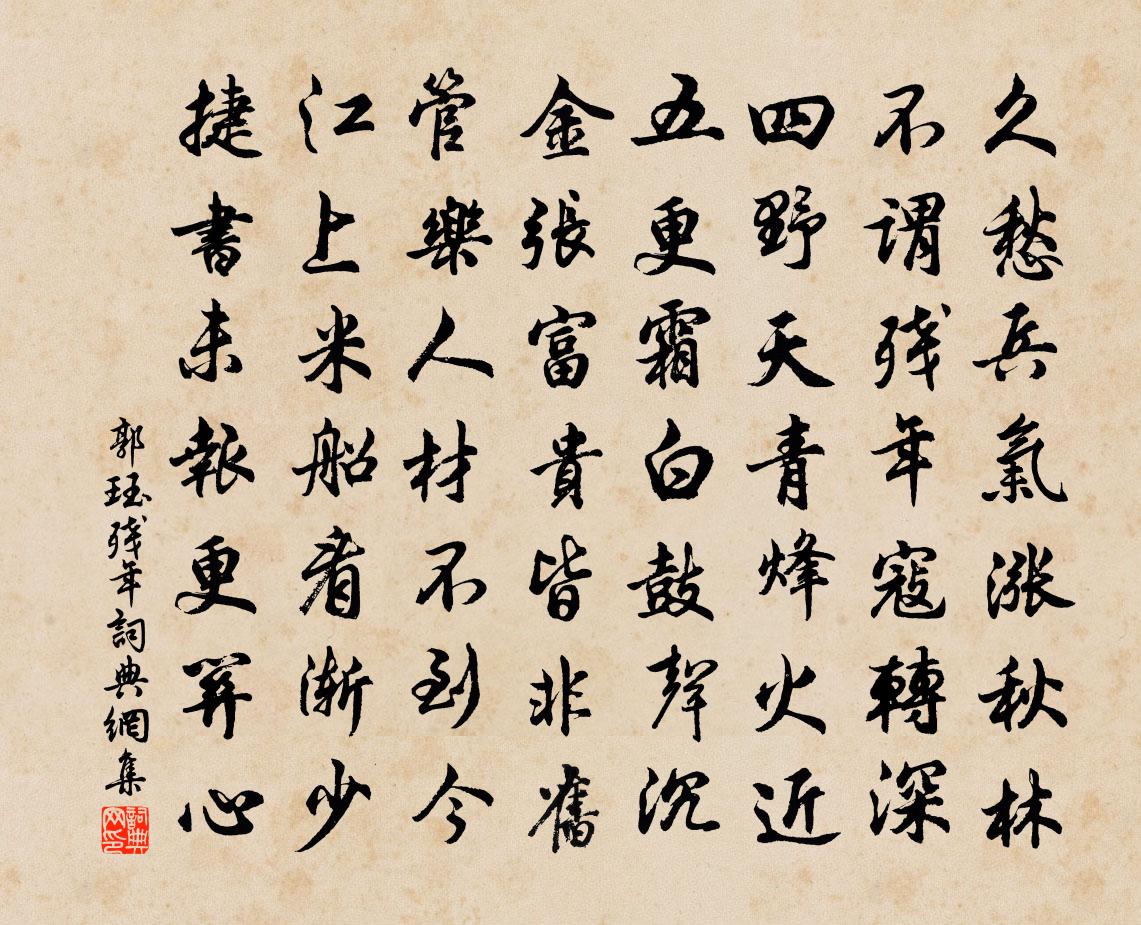 久愁兵氣漲秋林
不謂残年寇轉深
四野天青烽火近
五更霜白鼓聲沉
金張富貴皆非舊
管樂人材不到今
江上米船看漸少
捷書未報更關心
郭珏残年詞典網集
詞典网印